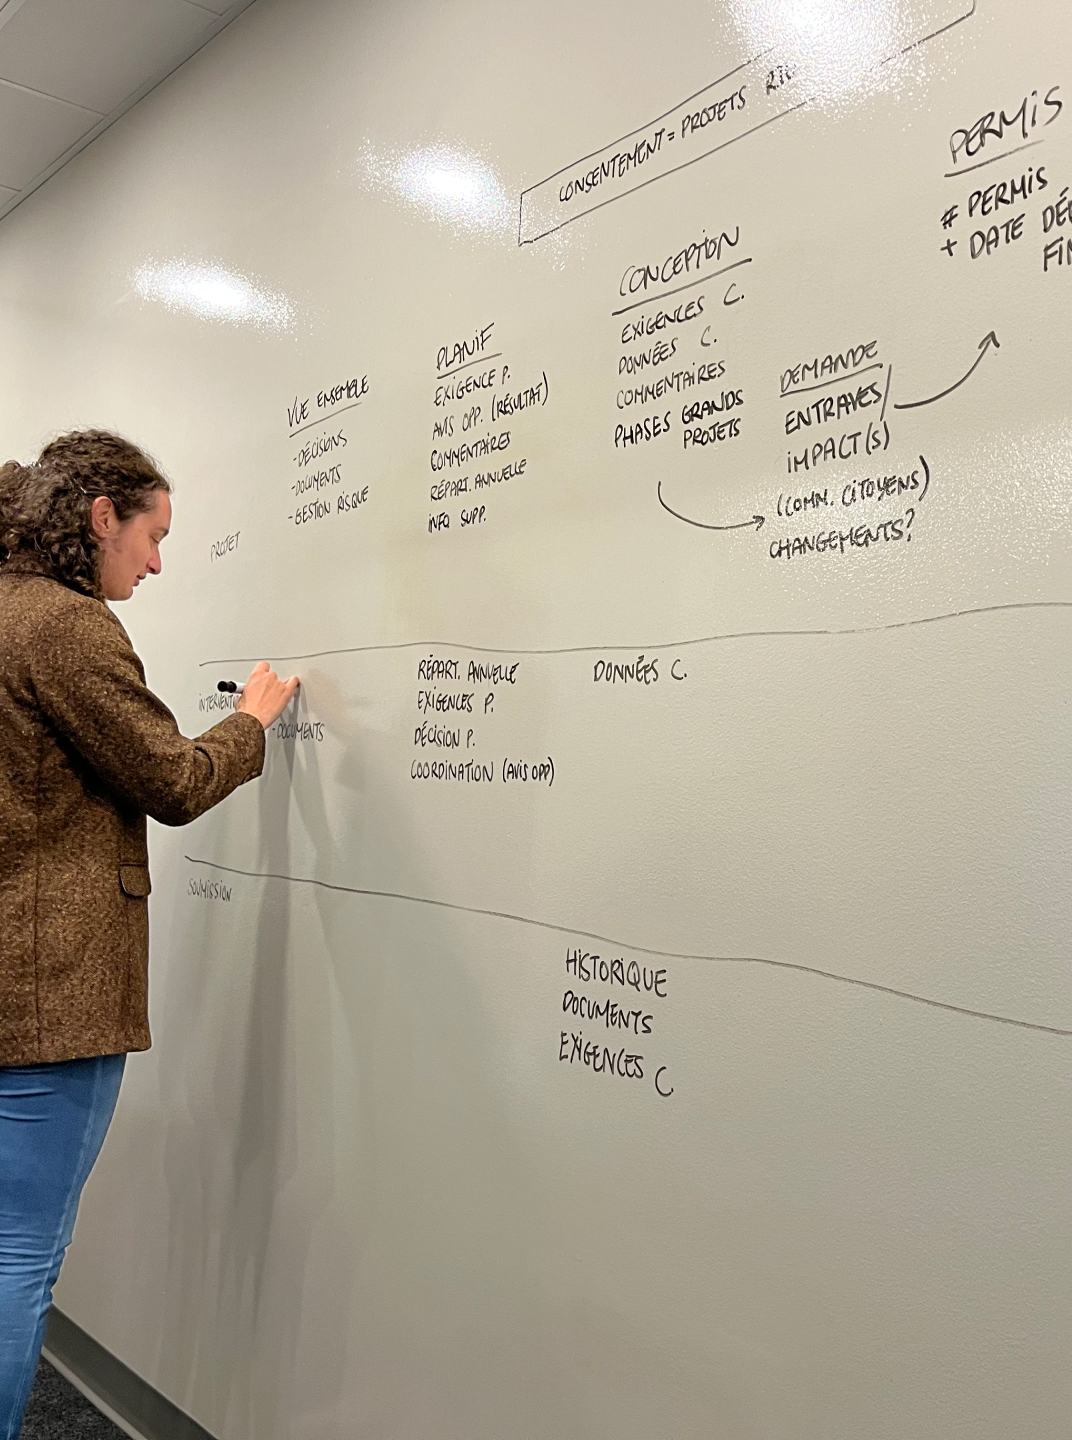 CONSENTEMENT = PROJETS
PERMIS
# PERMIS
+ DATE
CONCEPTION
EXIGENCES C.
DONNÉES C.
COMMENTAIRES
PHASES GRANDS
PROJETS
DEMANDE
ENTRAVES/
IMPACT(S)
(COMM. CITOYENS)
CHANGEMENTS?
PLANIF
EXIGENCE P.
AVIS OPP. (RÉSULTAT)
COMMENTAIRES
RÉPART. ANNUELLE
INFO SUPP.
VUE ENSEMBLE
-DÉCISIONS
-DOCUMENTS
-GESTION RISQUE
PROJET
RÉPART. ANNUELLE
EXIGENCES P.
DÉCISION P.
COORDINATION (AVIS OPP)
DONNÉES C.
-DOCUMENTS
SOUMISSION
HISTORIQUE
DOCUMENTS
EXIGENCES C.